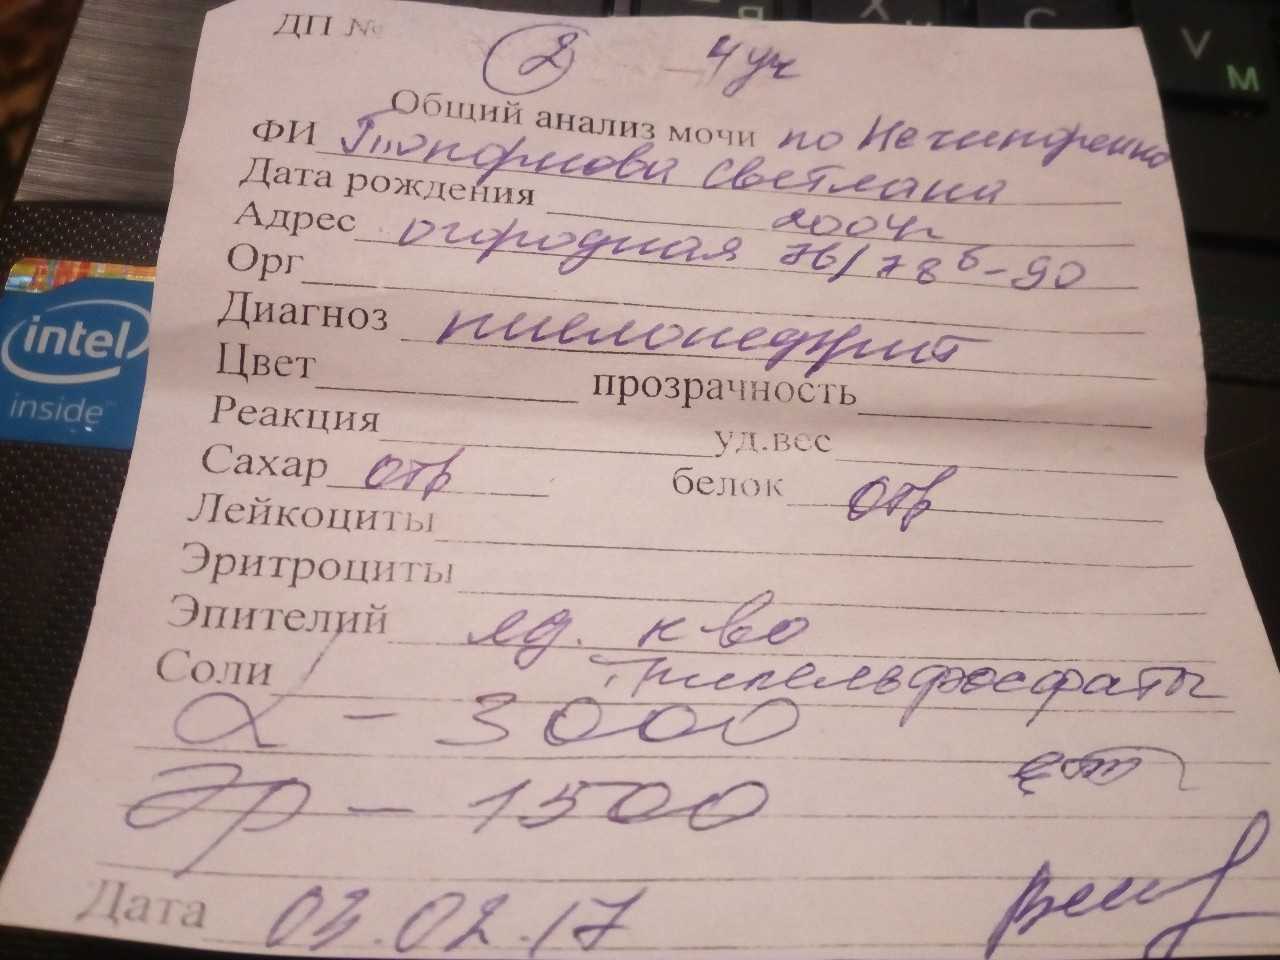 Я
Х
С
V
М
ДП №
2 4 уч
Общий анализ мочи по Нечипоренко
ФИ Топоркова Светлана
Дата рождения 2004г
Адрес огородная 76/78 б-90
Орг
Диагноз пиелонефрит
Цвет прозрачность
Реакция уд.вес
Сахар отр белок отр
Лейкоциты
Эритроциты
Эпителий ед. к-во
Соли Трипельфосфаты
L - 3000
Эр - 1500
Дата 03.02.17
intel
inside™